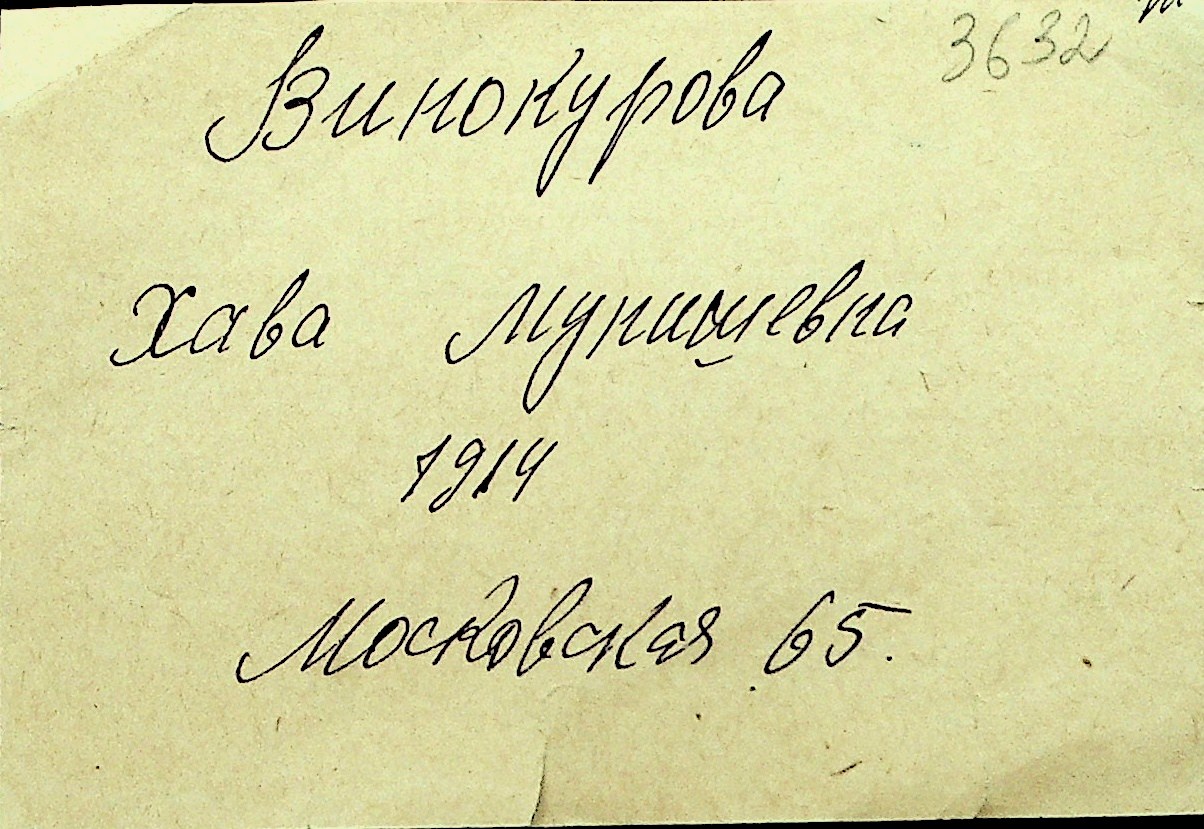 3632
Винокурова
Хава Мунишевна
1914
Московская 65.